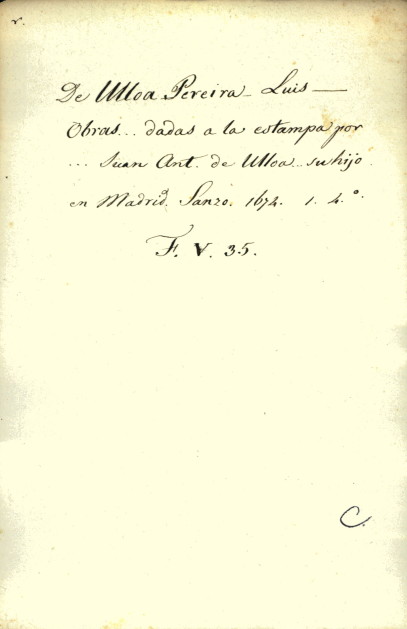 r.
De Ulloa Pereira - Luis —
Obras... dadas a la estampa por
... Juan Ant. de Ulloa... su hijo.
en Madrid. Sanzo. 1674. 1. 4.º
F. V. 35.
C.